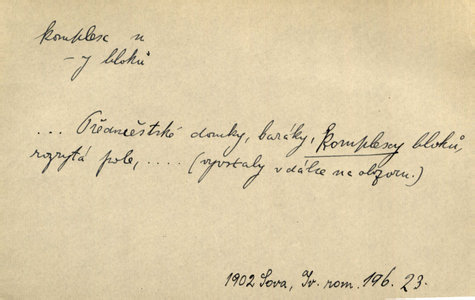 komplex m
-y bloků
... Předměstské domky, baráky, komplexy bloků,
rozrytá pole, .... (vyvstaly v dálce na obzoru.)
1902 Sova, Iv. rom. 196. 23.